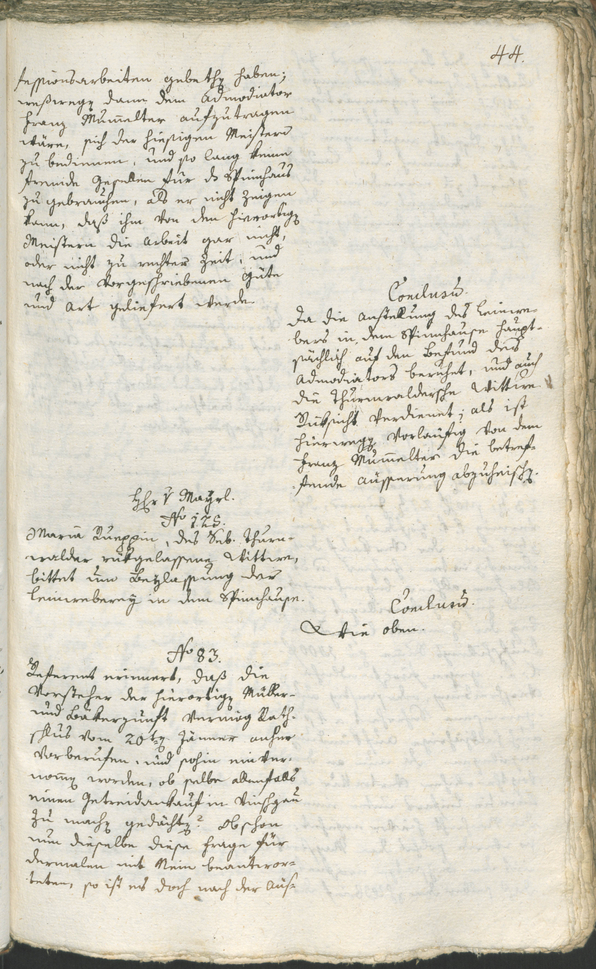 44.
fessionsarbeiten gebethen haben;
weßwegen dann dem Admodiator
Franz Mumelter aufzutragen
wäre, sich der hiesigen Meistern
zu bedienen, und so lang keine
fremde Gesellen für das Spinnhaus
zu gebrauchen, als er nicht zeigen
kann, daß ihm von den hierortigen
Meistern die Arbeit gar nicht,
oder nicht zu rechter Zeit, und
nach der vorgeschriebenen Güte
und Art geliefert werde.
Conclusum.
Da die Anstellung des Leinwe-
bers in dem Spinnhause haupt-
sächlich auf den Befund des
Admodiators beruhet, und auch
die Thurnwaldersche Wittwe
Rüksicht verdienet; als ist
hierwegen vorläufig von dem
Franz Mumelter die betref-
fende Äusserung abzuheischen.
Hhr v Mayrl.
No 125.
Maria Rueppin, des Seb. Thurn-
walder rükgelassene Wittwe,
bittet um Beylassung der
Leinweberey in dem Spinnhause.
Conclusum.
Wie oben.
No 83.
Referent erinnert, daß die
Vorsteher der hierortigen Müller-
und Bäkerzunft vermög Rath-
schlus vom 20ten Jänner anher
vorberufen, und sohin einver-
nomen worden, ob selbe allenfalls
einen Getreidankauf in Vinschgau
zu machen gedächten? Obschon
nun dieselbe diese Frage für
dermalen mit Nein beantwor-
teten, so ist es doch nach der Aus-